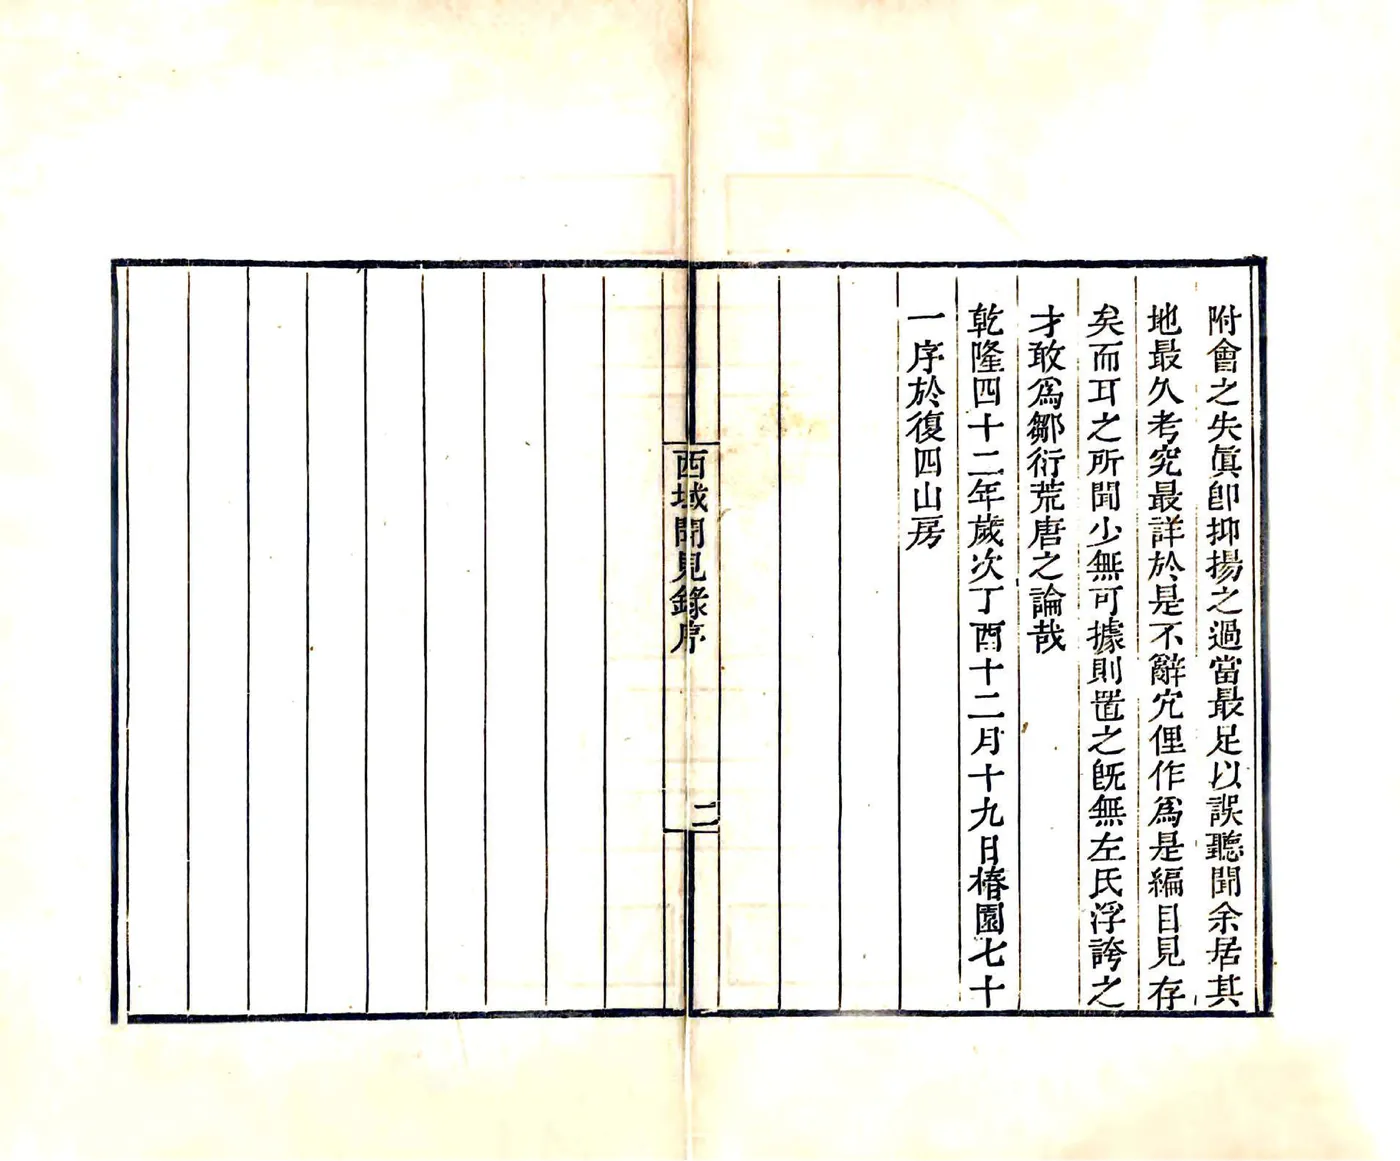 附會之失眞卽抑揚之過當最足以誤聽聞余居其
地最久考究最詳於是不辭冗俚作爲是編目見存
矣而耳之所聞少無可據則置之旣無左氏浮誇之
才敢爲鄒衍荒唐之論哉
乾隆四十二年歲次丁酉十二月十九日椿園七十
一序於復四山房
西域聞見錄序
二